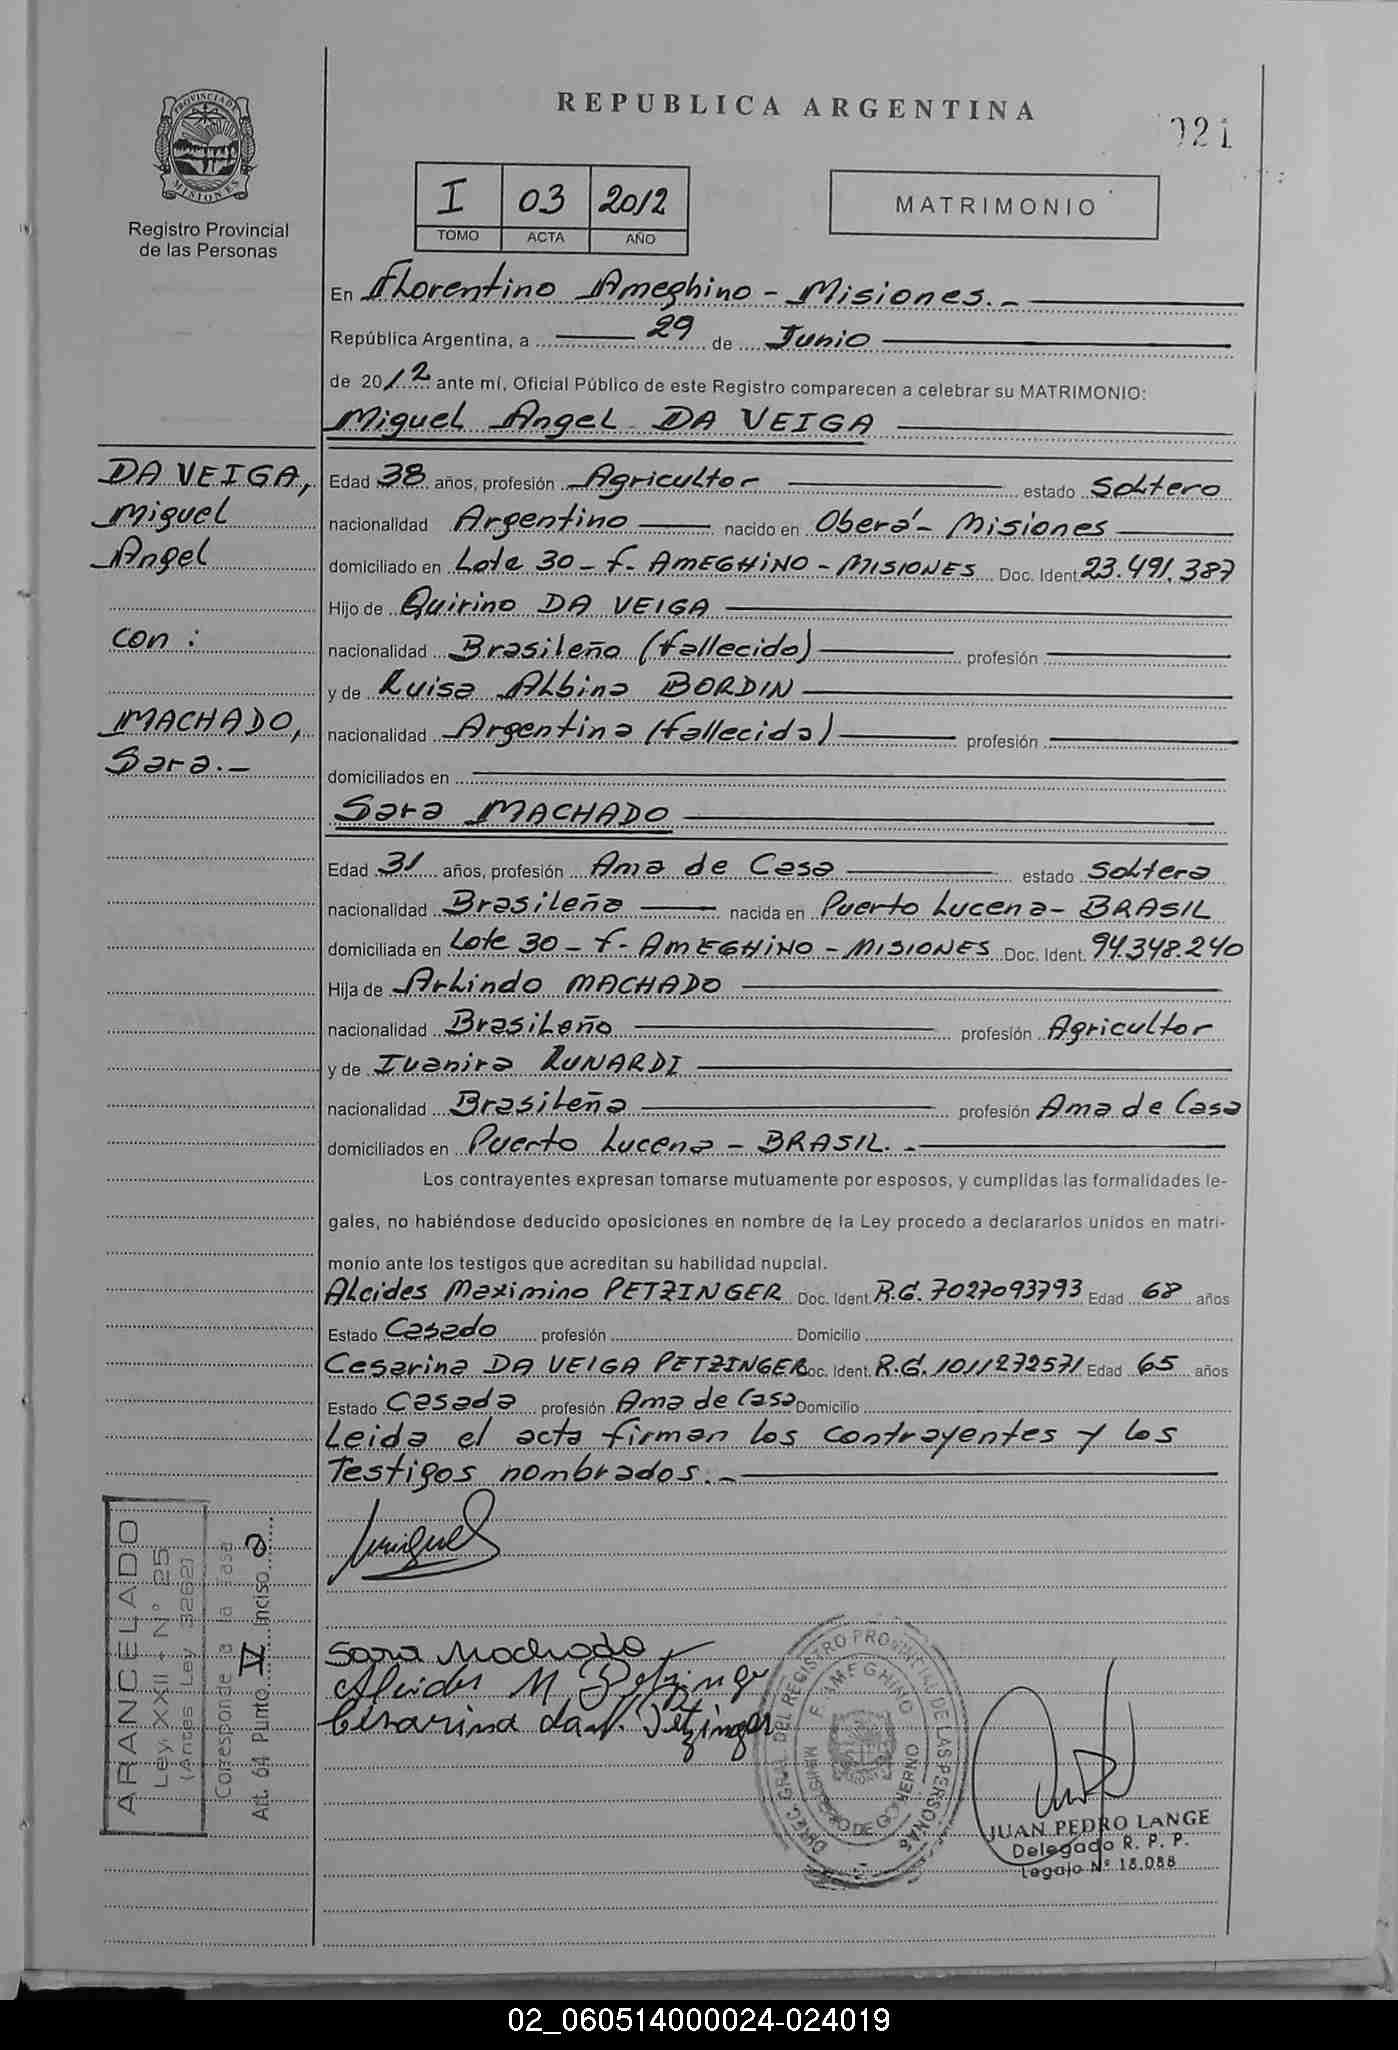 PROVINCIA DE
MISIONES
Registro Provincial
de las Personas
REPUBLICA ARGENTINA
021
I 03 2012
TOMO ACTA AÑO
MATRIMONIO
En Florentino Ameghino - Misiones.-
República Argentina, a 29 de Junio
de 2012 ante mí, Oficial Público de este Registro comparecen a celebrar su MATRIMONIO:
Miguel Angel DA VEIGA
DA VEIGA,
Miguel
Angel
con :
MACHADO,
Sara.-
Edad 38 años, profesión Agricultor estado Soltero
nacionalidad Argentino nacido en Oberá - Misiones
domiciliado en Lote 30 - F. AMEGHINO - MISIONES Doc. Ident. 23.491.387
Hijo de Quirino DA VEIGA
nacionalidad Brasileño (fallecido) profesión
y de Luisa Albina BORDIN
nacionalidad Argentina (fallecida) profesión
domiciliados en
Sara MACHADO
Edad 31 años, profesión Ama de Casa estado Soltera
nacionalidad Brasileña nacida en Puerto Lucena - BRASIL
domiciliada en Lote 30 - F. AMEGHINO - MISIONES Doc. Ident. 94.348.240
Hija de Arlindo MACHADO
nacionalidad Brasileño profesión Agricultor
y de Ivanira LUNARDI
nacionalidad Brasileña profesión Ama de Casa
domiciliados en Puerto Lucena - BRASIL.-
Los contrayentes expresan tomarse mutuamente por esposos, y cumplidas las formalidades le-
gales, no habiéndose deducido oposiciones en nombre de la Ley procedo a declararlos unidos en matri-
monio ante los testigos que acreditan su habilidad nupcial.
Alcides Maximino PETZINGER Doc. Ident. R.G. 7027093793 Edad 68 años
Estado Casado profesión Domicilio
Cesarina DA VEIGA PETZINGER Doc. Ident. R.G. 1011272571 Edad 65 años
Estado Casada profesión Ama de Casa Domicilio
Leida el acta firman los contrayentes y los
Testigos nombrados.-
Miguel
Sara Machado
Alcides M Petzinge
Cesarina da V. Petzinger
ARANCELADO
Ley XXII - N° 25
(Antes Ley 3262)
Corresponde a la Tasa
Art. 64 Punto IV Inciso a
DIREC. GRAL. DEL REGISTRO PROVINCIAL DE LAS PERSONAS
F. AMEGHINO
MINISTERIO DE GOBIERNO
JUAN PEDRO LANGE
Delegado R. P. P.
Legajo Nº 18.088
02_060514000024-024019